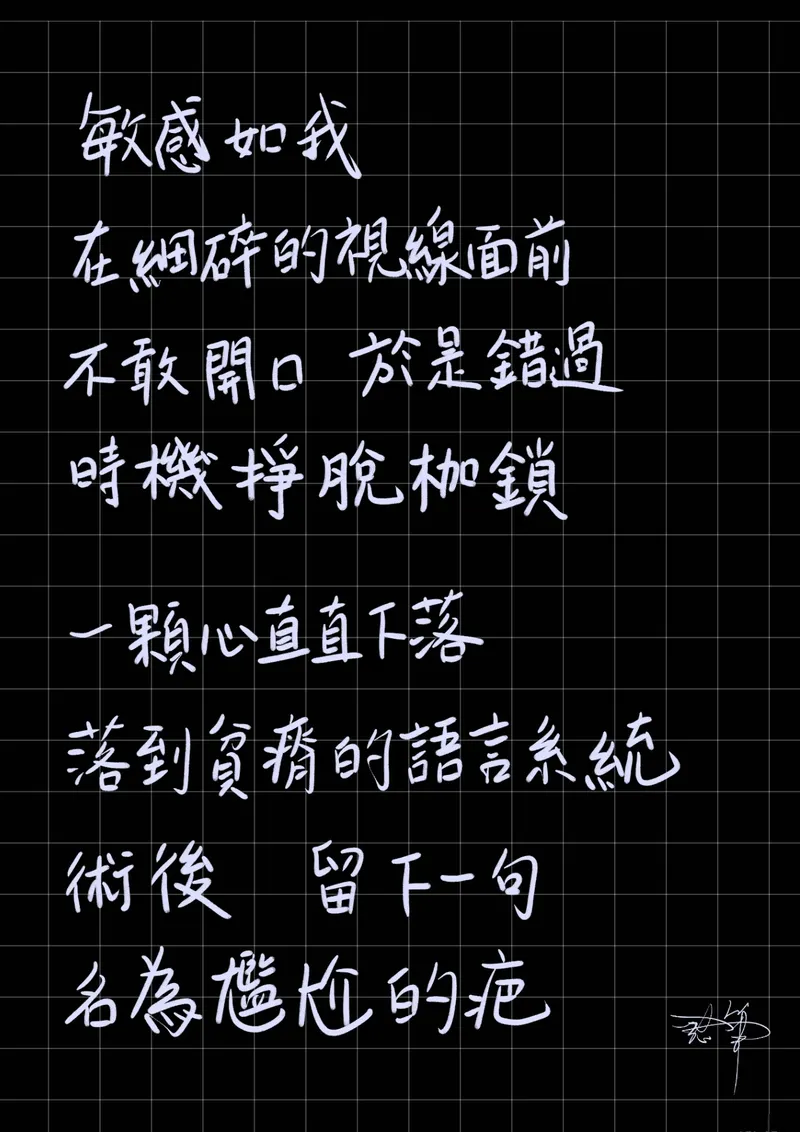 敏感如我
在細碎的視線面前
不敢開口 於是錯過
時機掙脫枷鎖
一顆心直直下落
落到貧瘠的語言系統
術後 留下一句
名為尷尬的疤